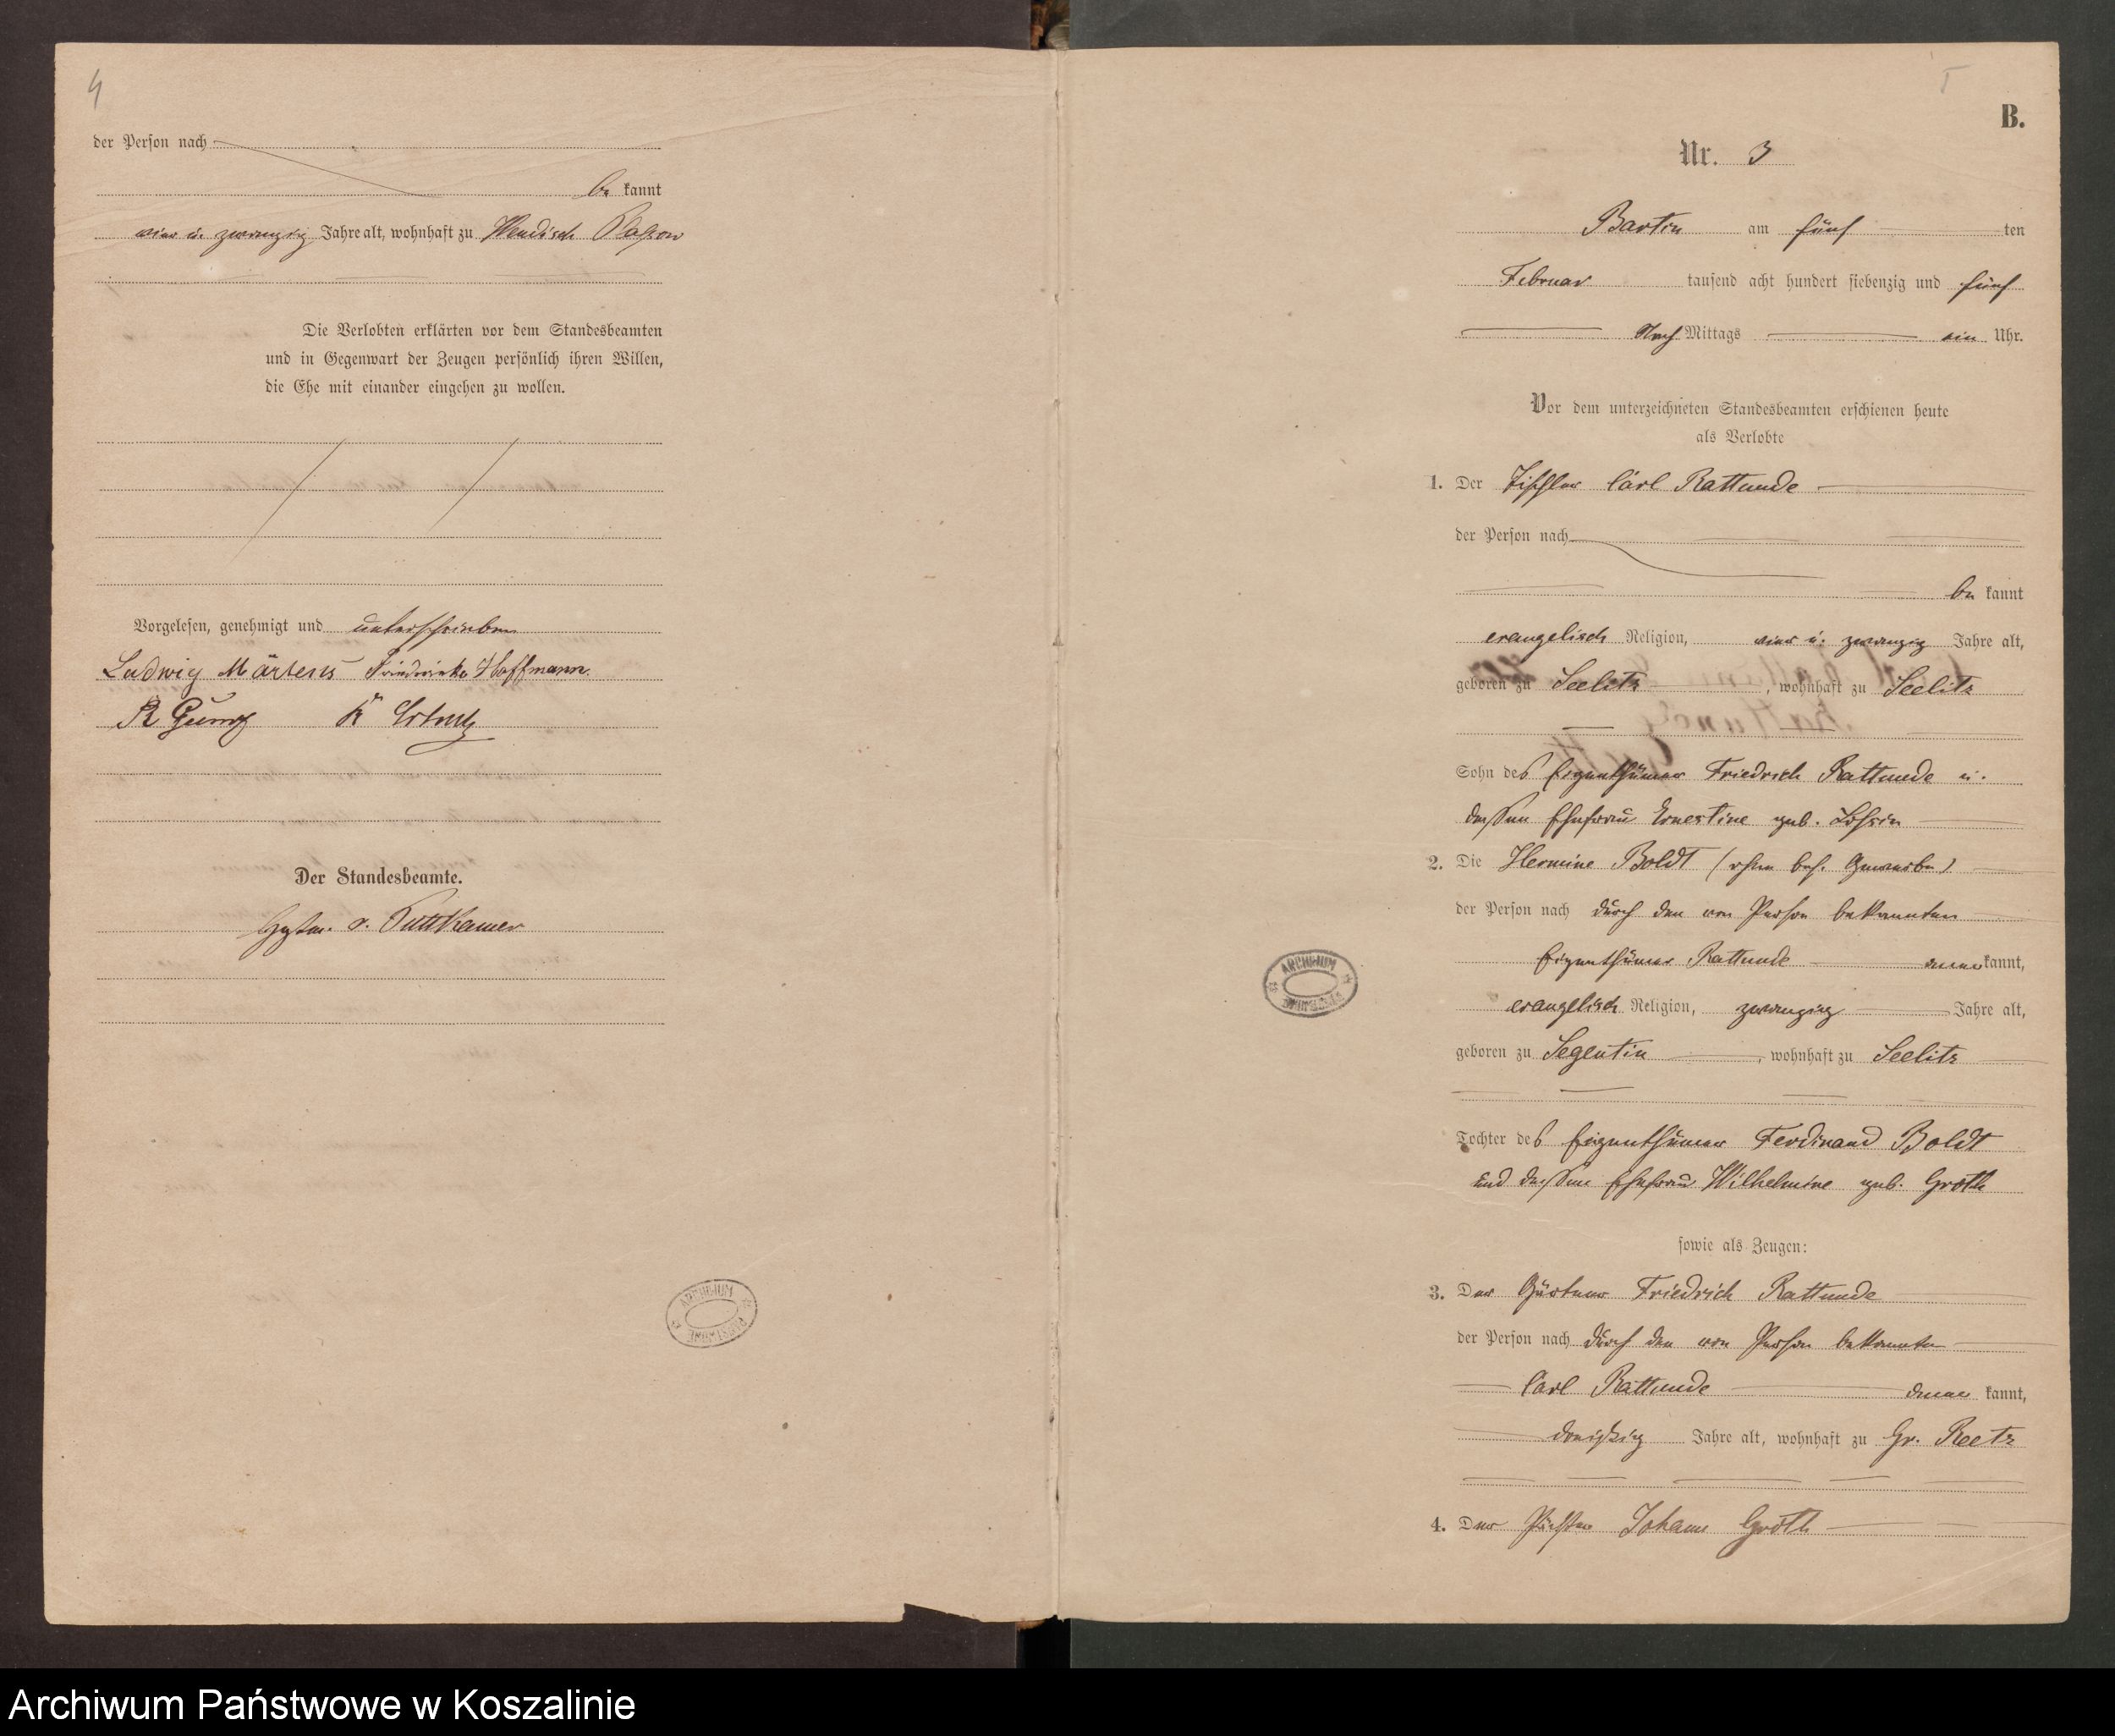 4
der Person nach
be kannt
vier u. zwanzig Jahre alt, wohnhaft zu Wendisch Plassow
Die Verlobten erklärten vor dem Standesbeamten
und in Gegenwart der Zeugen persönlich ihren Willen,
die Ehe mit einander eingehen zu wollen.
Vorgelesen, genehmigt und unterschrieben
Ludwig Märtens Friedericke Hoffmann.
R
Der Standesbeamte.
v. Puttkamer
ARCHIWUM PAŃSTWOWE
B.
Nr. 3
Bartin am fünf ten
Februar tausend acht hundert siebenzig und fünf
Nach Mittags ein Uhr.
Vor dem unterzeichneten Standesbeamten erschienen heute
als Verlobte
1. Der Tischler Carl Rattunde
der Person nach
be kannt
evangelisch Religion, vier u. zwanzig Jahre alt,
geboren zu Seelitz, wohnhaft zu Seelitz
Sohn des Eigenthümer Friedrich Rattunde u.
dessen Ehefrau Ernestine geb.
2. Die Hermine Boldt (ohne bes. Gewerbe)
der Person nach durch den von Person bekannten
Eigenthümer Rattunde aner kannt,
evangelisch Religion, zwanzig Jahre alt,
geboren zu Segentin, wohnhaft zu Seelitz
Tochter des Eigenthümer Ferdinand Boldt
und dessen Ehefrau Wilhelmine geb. Groth
sowie als Zeugen:
3. Der Gärtner Friedrich Rattunde
der Person nach durch den von Person bekannten
Carl Rattunde aner kannt,
dreißig Jahre alt, wohnhaft zu Gr. Reetz
4. Der Pächter Johann Groth
ARCHIWUM PAŃSTWOWE
Archiwum Państwowe w Koszalinie